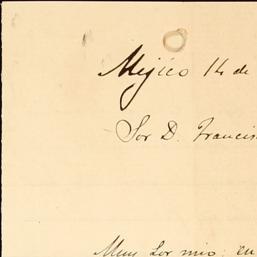 Mejico 14 de
Sor D. Francis
Muy Sor mio: en